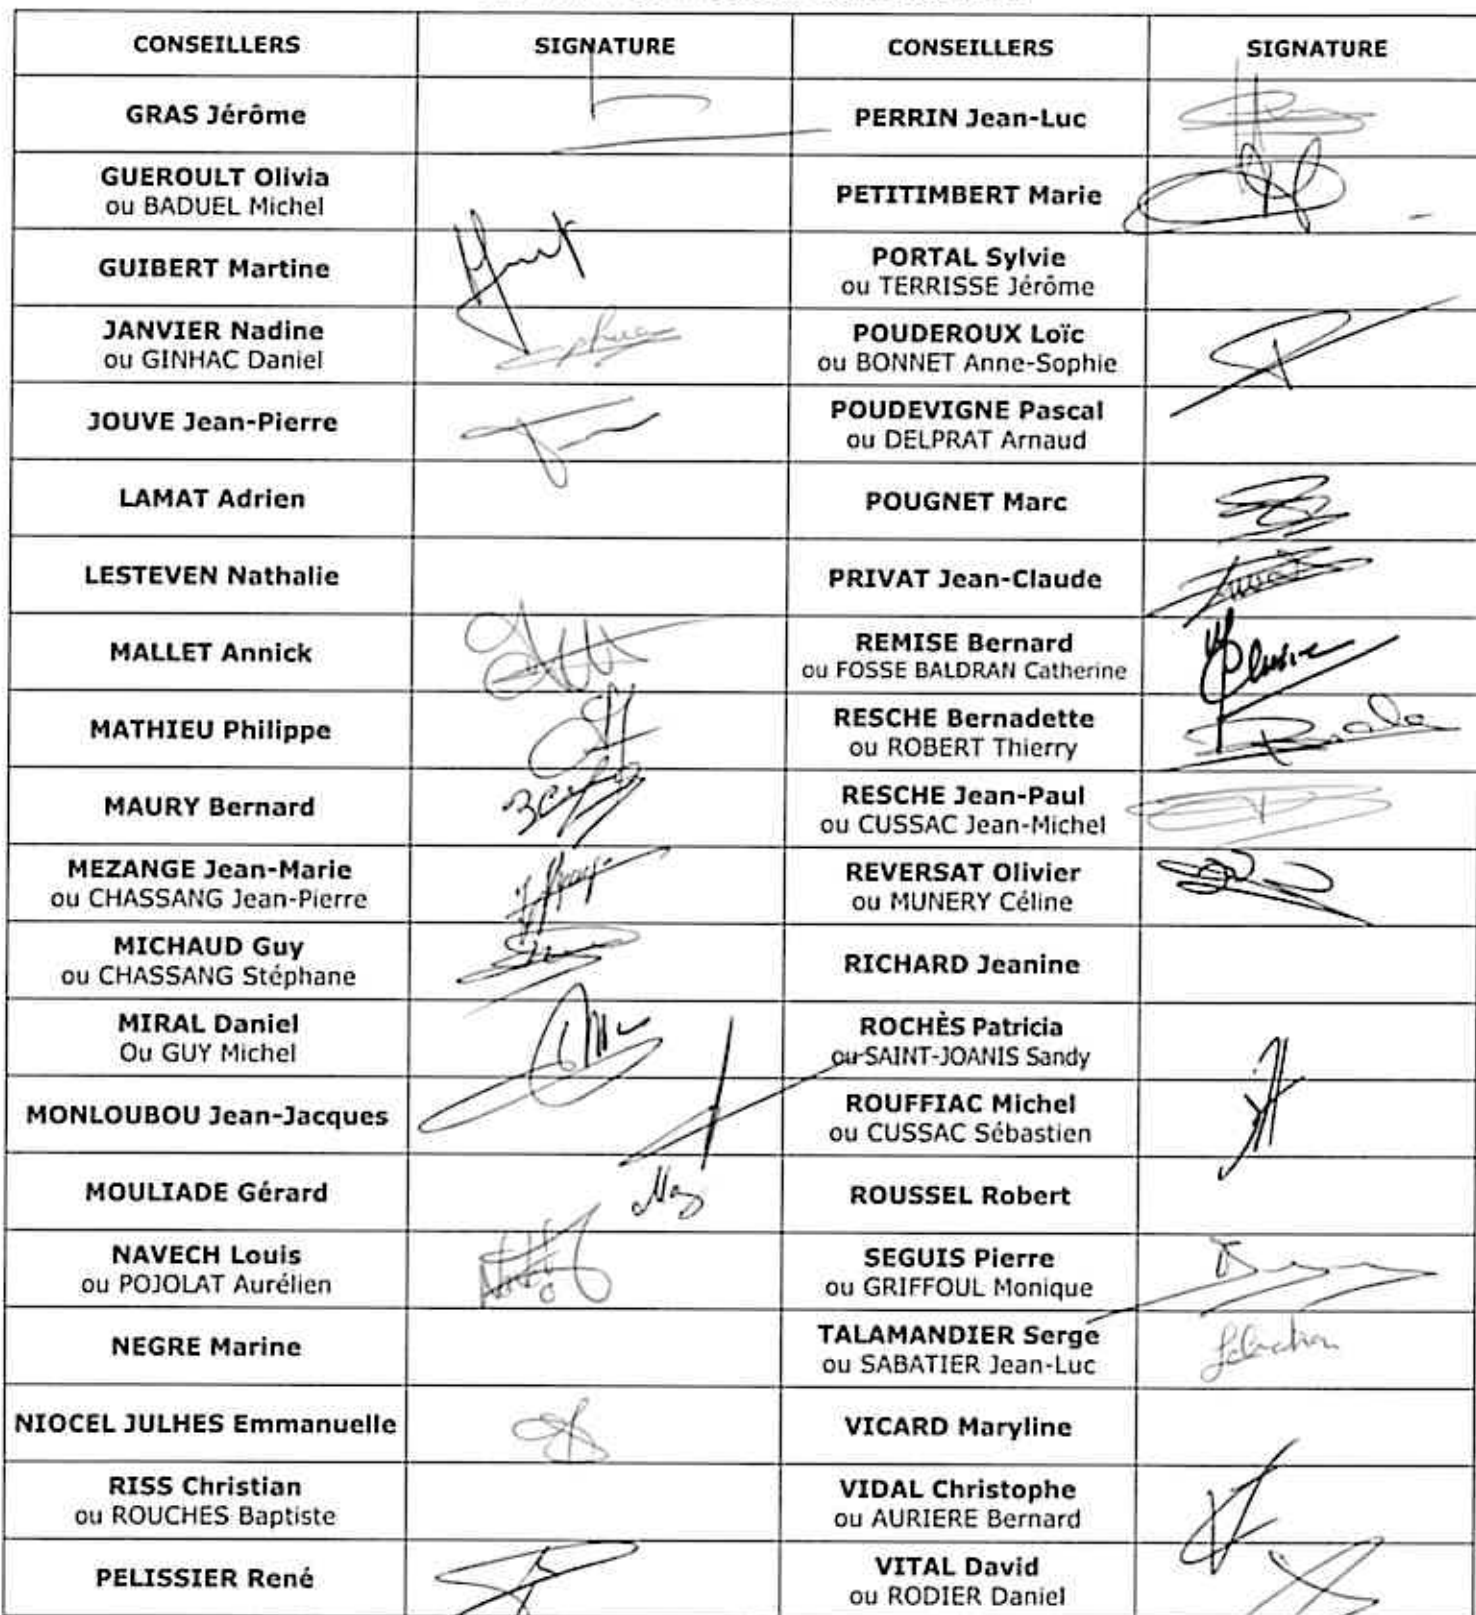 CONSEILLERS SIGNATURE CONSEILLERS SIGNATURE
GRAS Jérôme PERRIN Jean-Luc
GUEROULT Olivia
ou BADUEL Michel PETITIMBERT Marie
GUIBERT Martine PORTAL Sylvie
ou TERRISSE Jérôme
JANVIER Nadine POUDEROUX Loïc
ou GINHAC Daniel ou BONNET Anne-Sophie
JOUVE Jean-Pierre POUDEVIGNE Pascal
ou DELPRAT Arnaud
LAMAT Adrien POUGNET Marc
LESTEVEN Nathalie PRIVAT Jean-Claude
MALLET Annick REMISE Bernard
ou FOSSE BALDRAN Catherine
MATHIEU Philippe RESCHE Bernadette
ou ROBERT Thierry
MAURY Bernard RESCHE Jean-Paul
ou CUSSAC Jean-Michel
MEZANGE Jean-Marie REVERSAT Olivier
ou CHASSANG Jean-Pierre ou MUNERY Céline
MICHAUD Guy
ou CHASSANG Stéphane RICHARD Jeanine
MIRAL Daniel ROCHÈS Patricia
Ou GUY Michel ou SAINT-JOANIS Sandy
MONLOUBOU Jean-Jacques ROUFFIAC Michel
ou CUSSAC Sébastien
MOULIADE Gérard ROUSSEL Robert
NAVECH Louis SEGUIS Pierre
ou POJOLAT Aurélien ou GRIFFOUL Monique
NEGRE Marine TALAMANDIER Serge
ou SABATIER Jean-Luc
NIOCEL JULHES Emmanuelle VICARD Maryline
RISS Christian VIDAL Christophe
ou ROUCHES Baptiste ou AURIERE Bernard
PELISSIER René VITAL David
ou RODIER Daniel